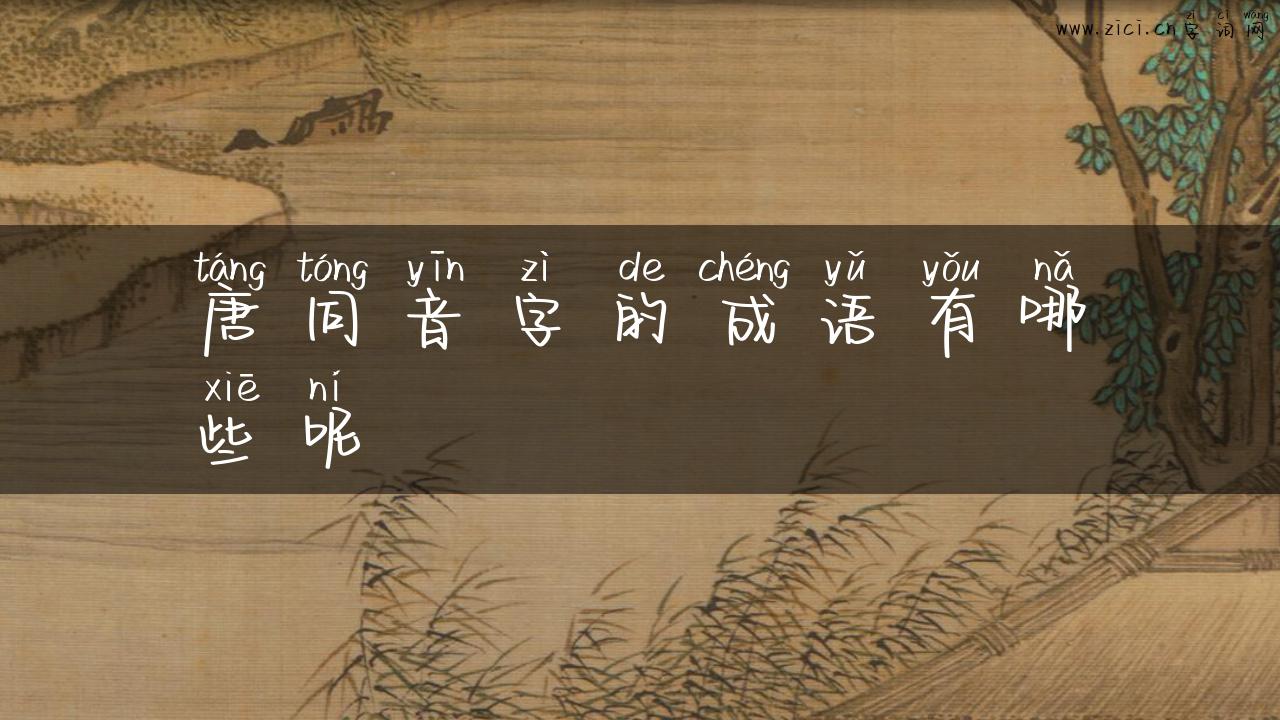 zì cí wǎng
www.zici.cn字词网
táng tóng yīn zì de chéng yǔ yǒu nǎ
唐同音字的成语有哪
xiē ní
些呢